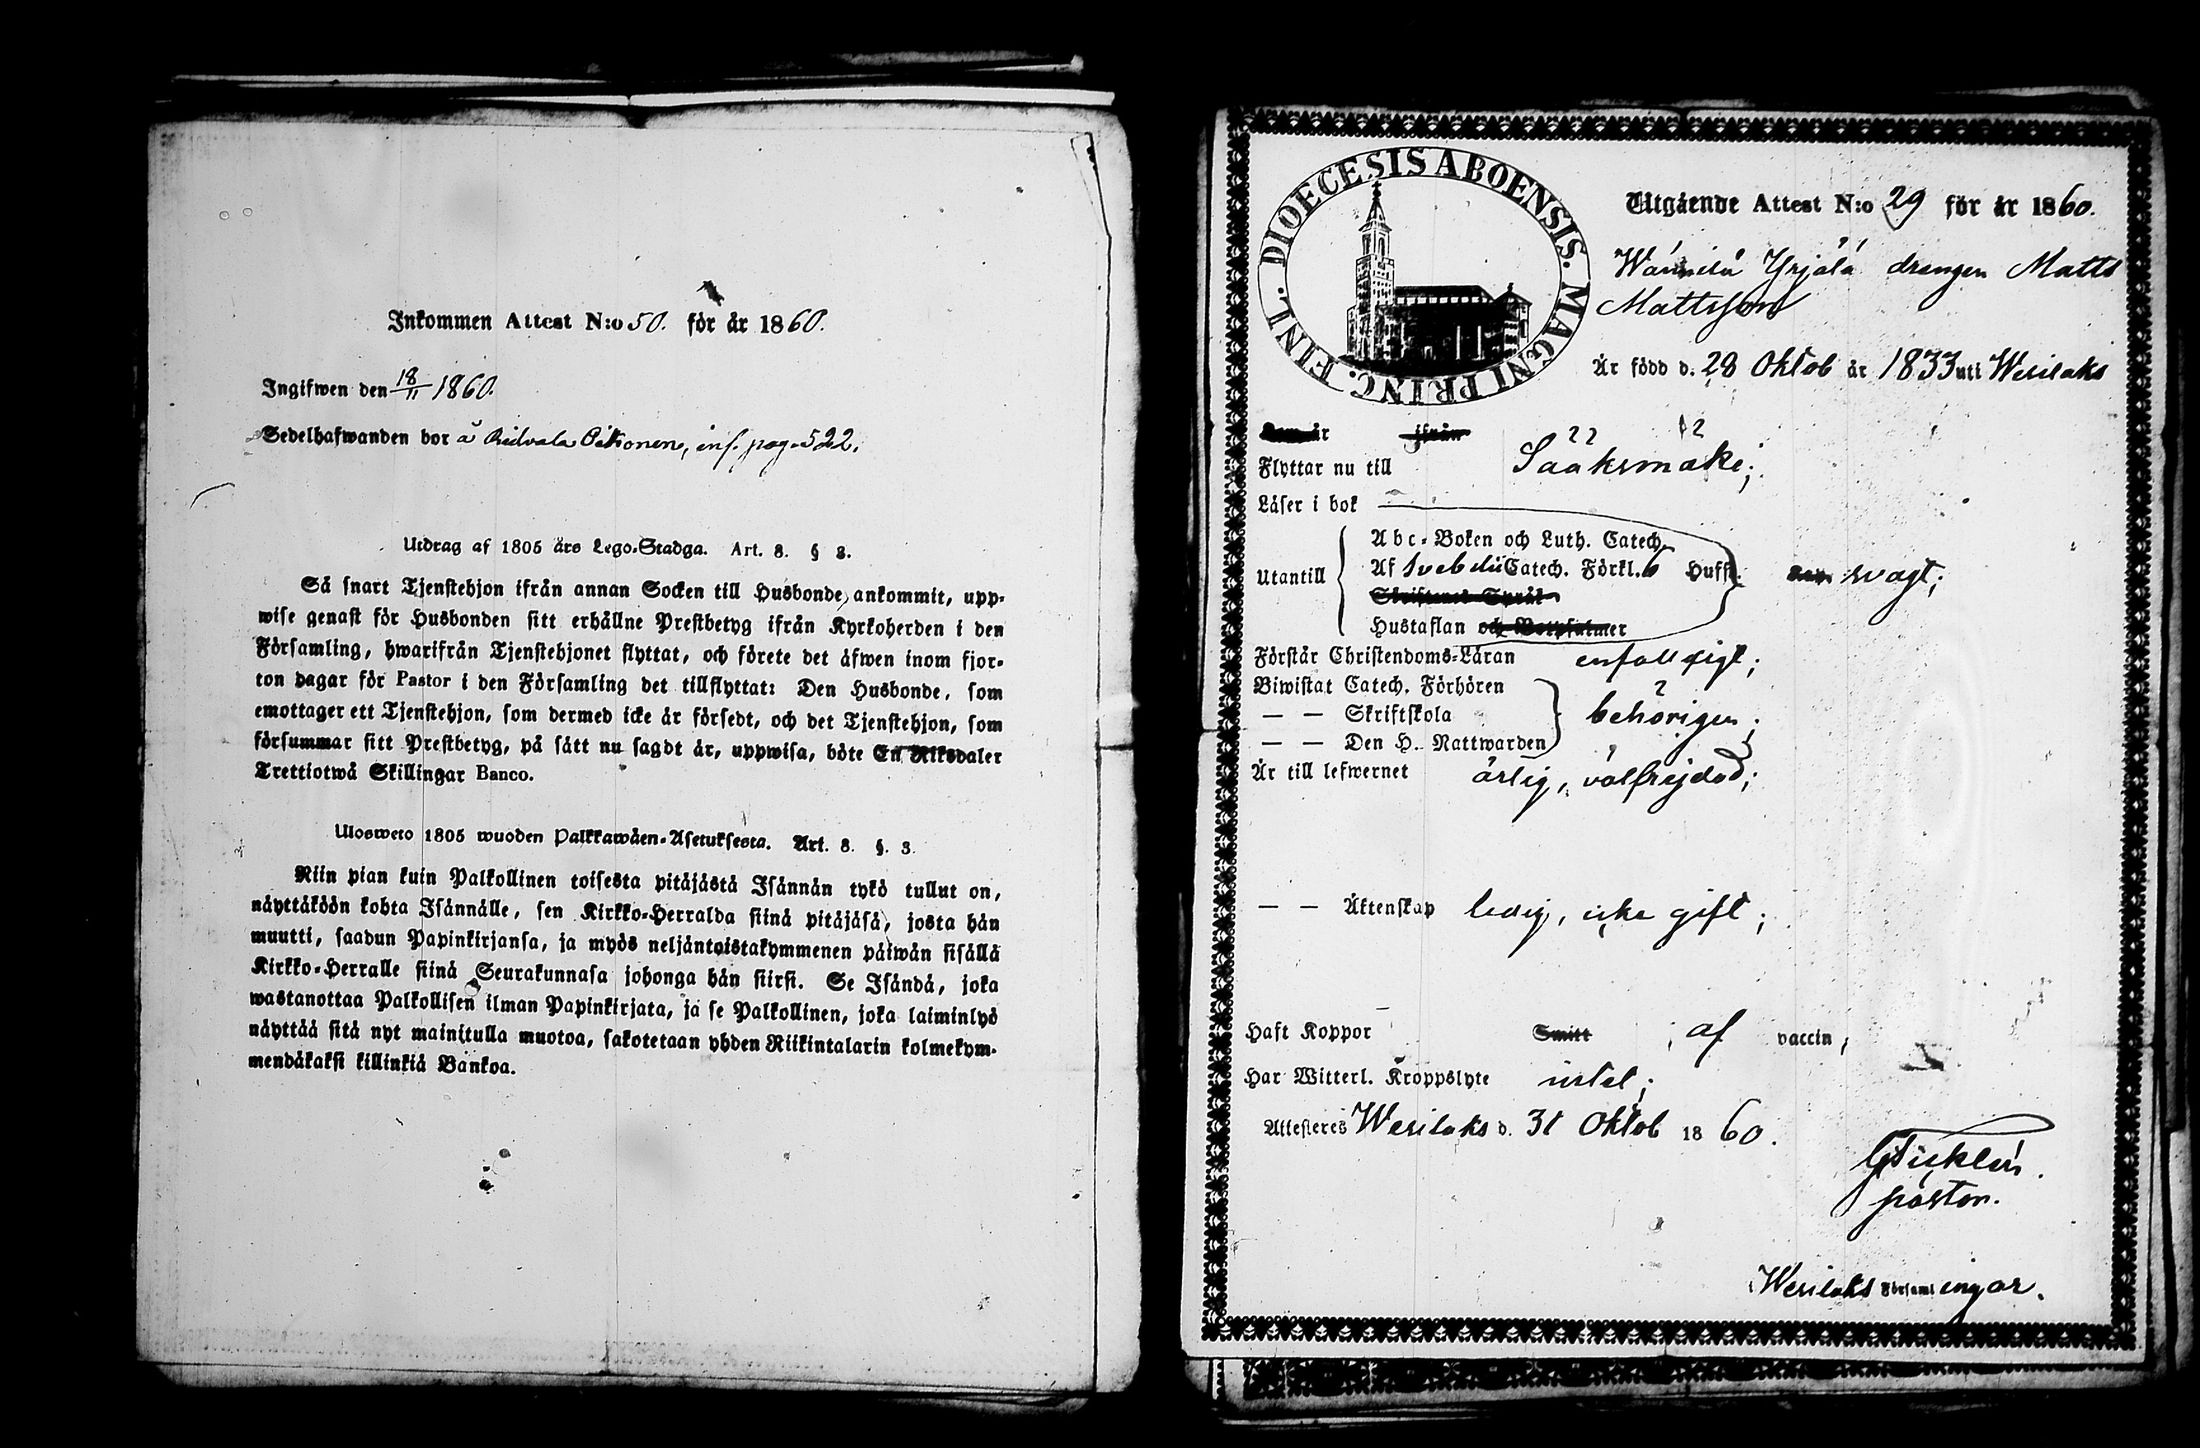 Inkommen Attest N:o 50. för år 1860.
Ingifwen den 18/11 1860.
Sedelhafwanden bor å Ridvala Eskonen, inf. pag. 522.
Utdrag af 1805 års Lego-Stadga. Art. 8. § 3.
Så snart Tjenstehjon ifrån annan Socken till Husbonde ankommit, upp-
wise genast för Husbonden sitt erhållne Prestbetyg ifrån Kyrkoherden i den
Församling, hwarifrån Tjenstehjonet flyttat, och förete det äfwen inom fjor-
ton dagar för Pastor i den Församling det tillflyttat: Den Husbonde, som
emottager ett Tjenstehjon, som dermed icke är försedt, och det Tjenstehjon, som
försummar sitt Prestbetyg, på sätt nu sagdt är, uppwisa, böte En Riksdaler
Trettiotwå Skillingar Banco.
Ulosweto 1805 wuoden Palkkawäen-Asetuksesta. Art. 8. §. 3.
Niin pian kuin Palkollinen toisesta pitäjästä Isännän tykö tullut on,
näyttäköön kohta Isännälle, sen Kirkko-Herralda siinä pitäjäsä, josta hän
muutti, saadun Papinkirjansa, ja myös neljäntoistakymmenen päiwän sisällä
Kirkko-Herralle siinä Seurakunnasa johonga hän siirsi. Se Isändä, joka
wastanottaa Palkollisen ilman Papinkirjata, ja se Palkollinen, joka laiminlyö
näyttää sitä nyt mainitulla muotoa, sakotetaan yhden Riikintalarin kolmekym-
mendäkaksi killinkiä Bankoa.
DIOECESIS ABOENSIS. MAGNI PRINC. FINL.
Utgående Attest N:o 29 för år 1860.
Wännilä Yrjälä drengen Matts
Mattsson
Är född d. 28 Oktob år 1833 uti Wesilaks
ifrån
Flyttar nu till Sääksmäki;
Läser i bok
Abc-Boken och Luth. Catech.
Utantill Af Svebelii Catech. Förkl. 6 Hufst. svagt;
Hustaflan och
Förstår Christendoms-Läran enfalldigt;
Biwistat Catech. Förhören
— — Skriftskola behörigen;
— — Den H. Nattwarden
Är till lefwernet ärlig, välfrejdad;
— — Äktenskap ledig, icke gift;
Haft Koppor Smitt ; af vaccin;
Har Witterl. Kroppslyte intet;
Attesteres Wesilaks d. 31 Oktob 1860.
pastor.
Wesilaks Församlingar.